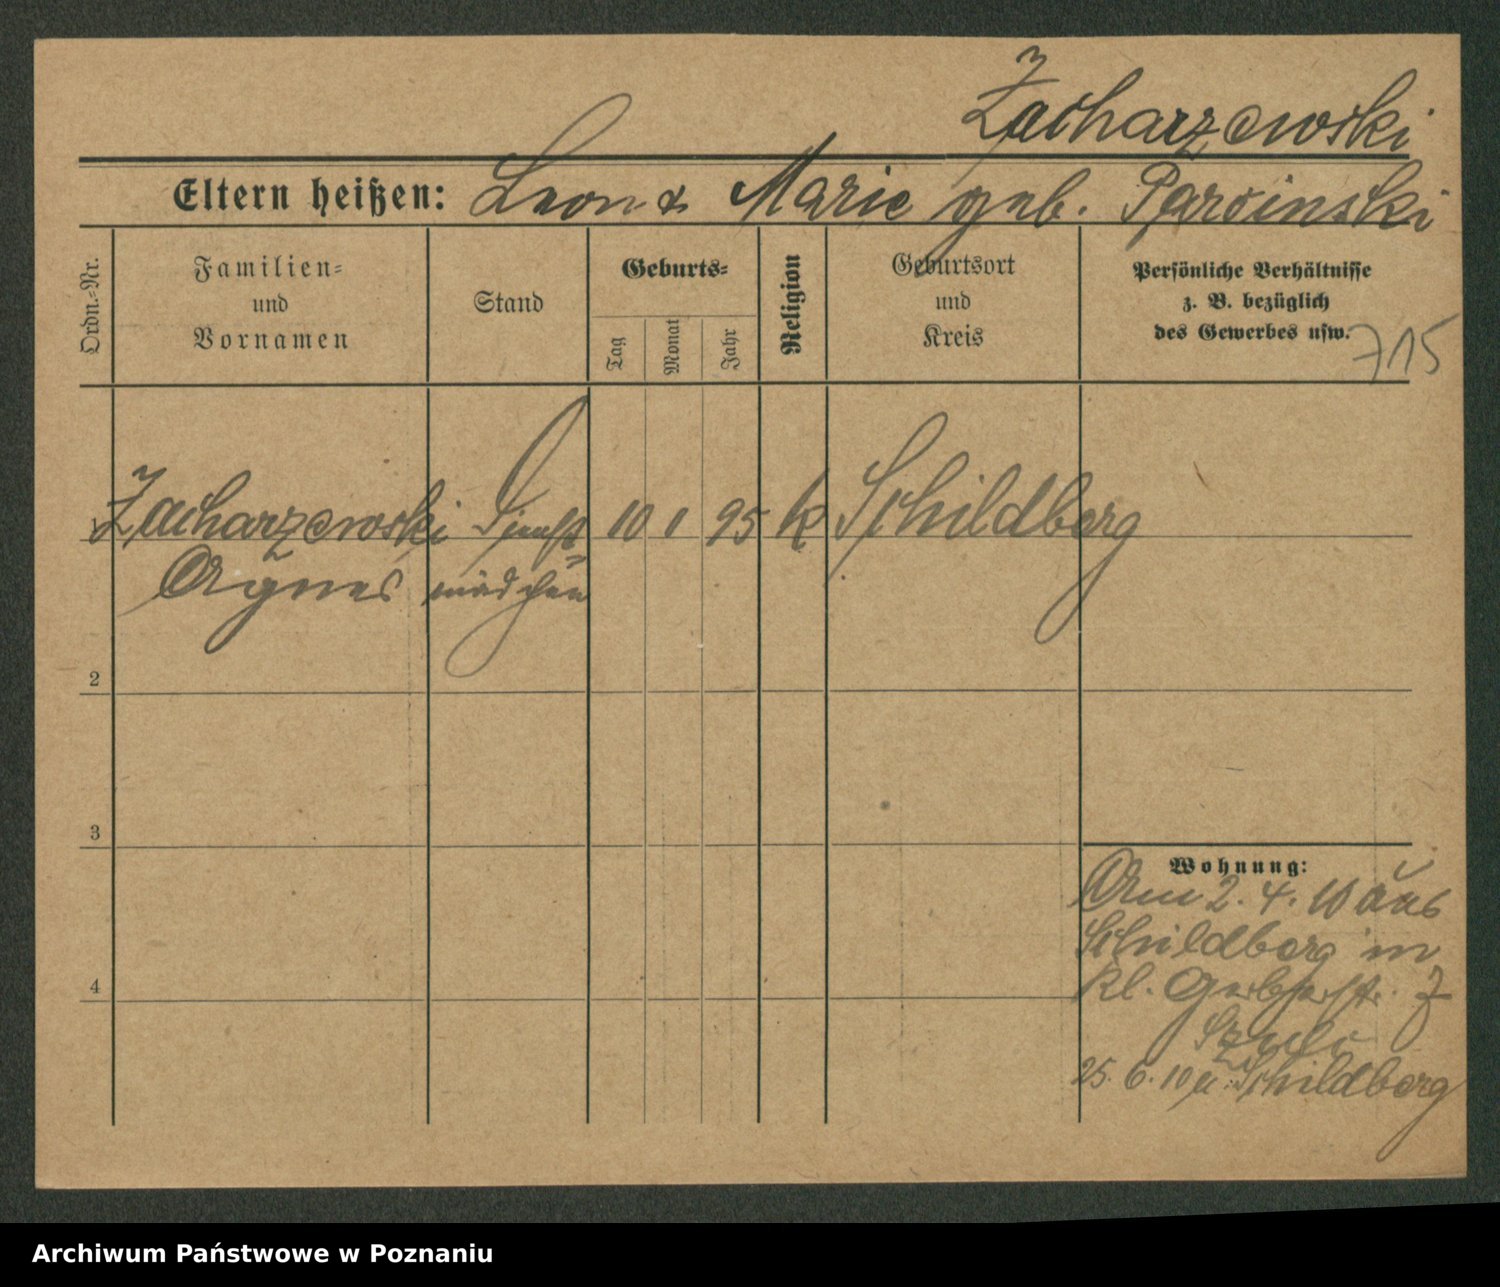 Zacharzewski
Eltern heißen: Leon & Marie geb. Parsinski
Ordn.-Nr.
Familien-
und
Vornamen
Stand
Geburts-
Tag
Monat
Jahr
Religion
Geburtsort
und
Kreis
Persönliche Verhältnisse
z. B. bezüglich
des Gewerbes usw.
715
1 Zacharzewski Dienst 10 1 95 k Schildberg
Agnes mädchen
2
3
4
Wohnung:
Am 2. 4. 10 aus
Schildberg in
Kl. Gerberstr. 7
25. 6. 10 n. Schildberg
Archiwum Państwowe w Poznaniu